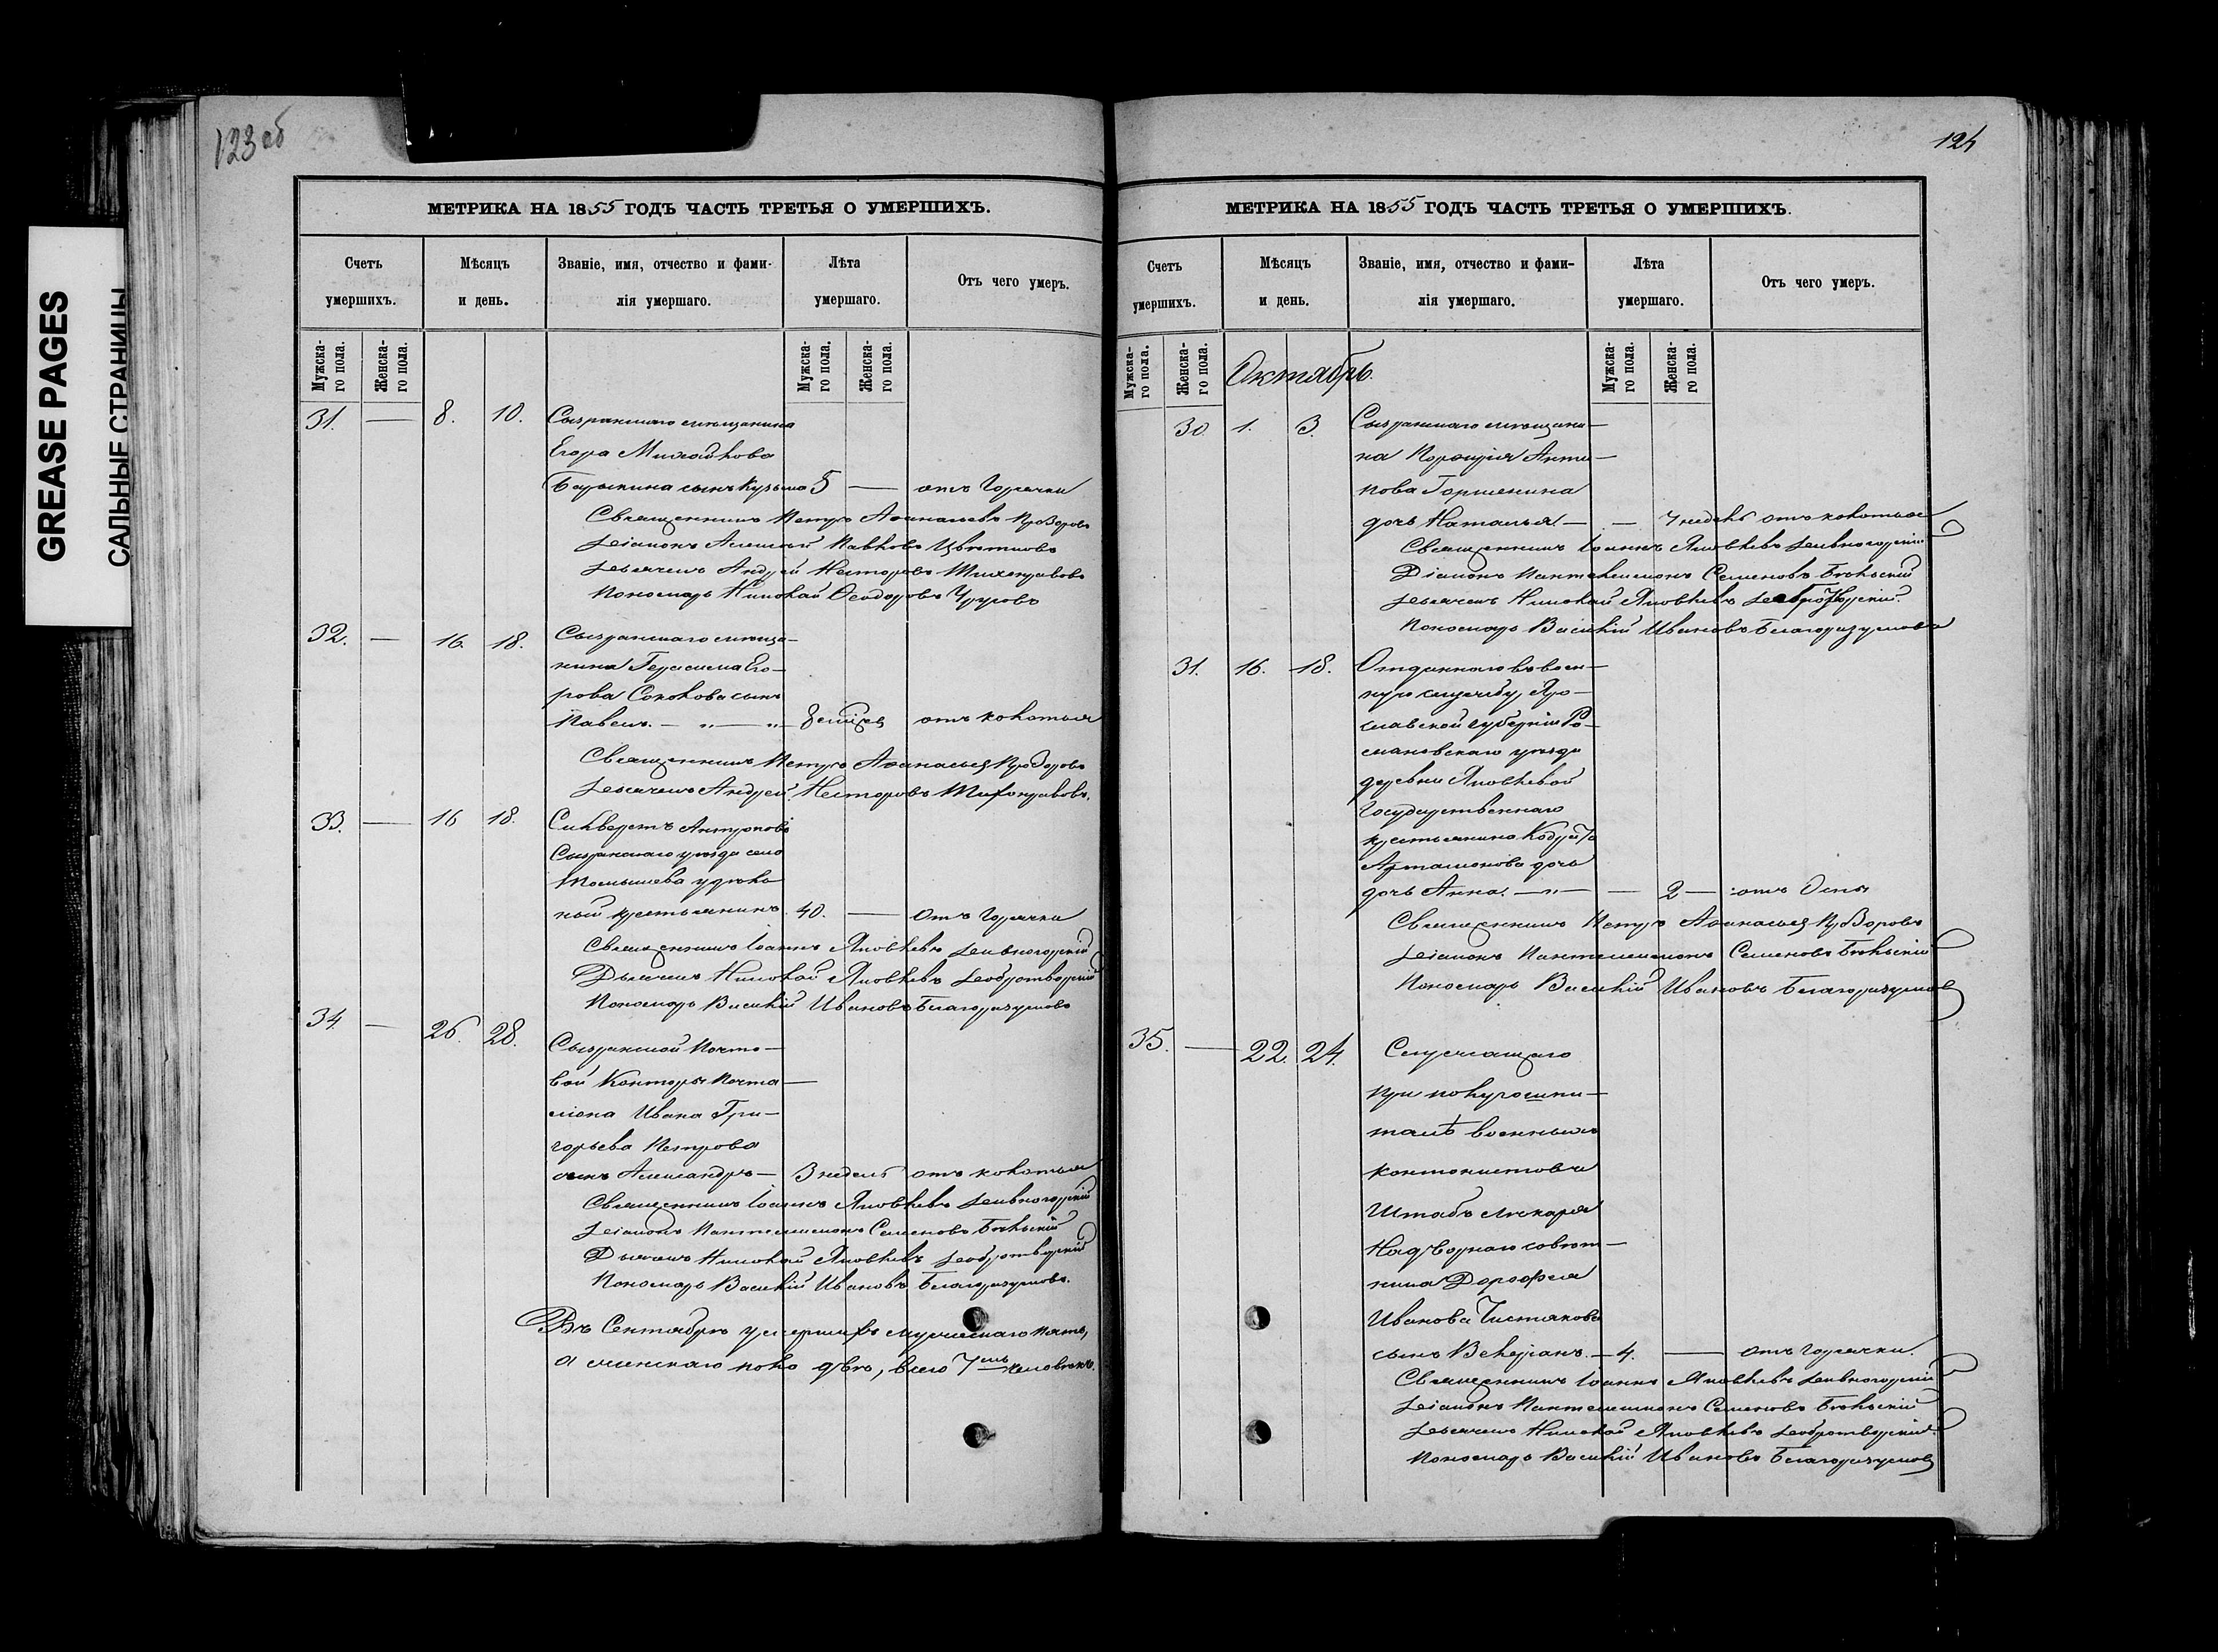 GREASE PAGES
САЛЬНЫЕ СТРАНИЦЫ
123 об
МЕТРИКА НА 1855 ГОДЪ ЧАСТЬ ТРЕТЬЯ О УМЕРШИХЪ.
Счетъ умершихъ.
Мѣсяцъ и день.
Званіе, имя, отчество и фами-
лія умершаго.
Лѣта умершаго.
Отъ чего умеръ.
Мужска-
го пола.
Женска-
го пола.
Мужска-
го пола.
Женска-
го пола.
31. — 8. 10. Сызранскаго мѣщанина
Егора Михайлова
сынъ Кузьма 5 — отъ Горячки
Священникъ Петръ Афанасьевъ
Діаконъ Алексѣй Павловъ Цвѣтковъ
Дьячекъ Андрей Несторовъ
Пономарь Николай Ѳеодоровъ
32. — 16. 18. Сызранскаго мѣща-
нина Герасима Его-
рова Соколова сынъ
Павелъ. — „ — „ — 8 мѣсяц отъ колотья
Священникъ Петръ Афанасьев
Дьячекъ Андрей Несторовъ
33. — 16 18. Сильверстъ Антроповъ
Сызранскаго уѣзда села
удѣль
ный крестьянинъ. 40. — Отъ Горячки
Священникъ Іоаннъ Яковлевъ
Дьячекъ Николай Яковлевъ Добротворскій
Пономарь Василій Ивановъ Благоразумовъ
34 — 26. 28. Сызранской Почто-
вой Конторы Почта-
ліона Ивана Гри-
горьева Петрова
сынъ Александръ — 3 недель отъ колотья
Священникъ Іоаннъ Яковлевъ
Діаконъ Пантелеимонъ Семеновъ Бѣльскій
Дьячекъ Николай Яковлевъ Добротворскій
Пономарь Василій Ивановъ Благоразумовъ.
Въ Сентябрѣ умершихъ мужескаго пять,
а женскаго пола двѣ, всего 7мь человѣкъ.
124
МЕТРИКА НА 1855 ГОДЪ ЧАСТЬ ТРЕТЬЯ О УМЕРШИХЪ.
Счетъ умершихъ.
Мѣсяцъ и день.
Званіе, имя, отчество и фами-
лія умершаго.
Лѣта умершаго.
Отъ чего умеръ.
Мужска-
го пола.
Женска-
го пола.
Мужска-
го пола.
Женска-
го пола.
Октябрь.
30. 1. 3. Сызранскаго мѣщани-
на Порфирія Анти-
пова Горшенина
дочь Наталья — — отъ колотья
Священникъ Іоаннъ Яковлевъ
Діаконъ Пантелеимонъ Семеновъ Бѣльскій
Дьячекъ Николай Яковлевъ
Пономарь Василій Ивановъ Благоразумовъ
31. 16. 18. Отданнаго въ воен-
ную службу, Яро-
славской губерніи Ро-
мановскаго уѣзда
деревни Яковлевой
Государственнаго
крестьянина
Артамонова дочь
дочь Анна. — „ — — 2 — отъ Оспы
Священникъ Петръ Афанасьев
Діаконъ Пантелеимонъ Семеновъ Бѣльскій
Пономарь Василій Ивановъ Благоразумов
35. — 22. 24. Служащаго
при полугоспи-
талѣ военныхъ
кантонистовъ
Штабъ лѣкаря
Надворнаго совѣт-
ника Дорофея
Иванова Чистякова
сынъ Валерьянъ. — 4. — отъ горячки.
Священникъ Іоаннъ Яковлевъ
Діаконъ Пантелеимонъ Семеновъ Бѣльскій
Дьячекъ Николай Яковлевъ Добротворскій
Пономарь Василій Ивановъ Благоразумов